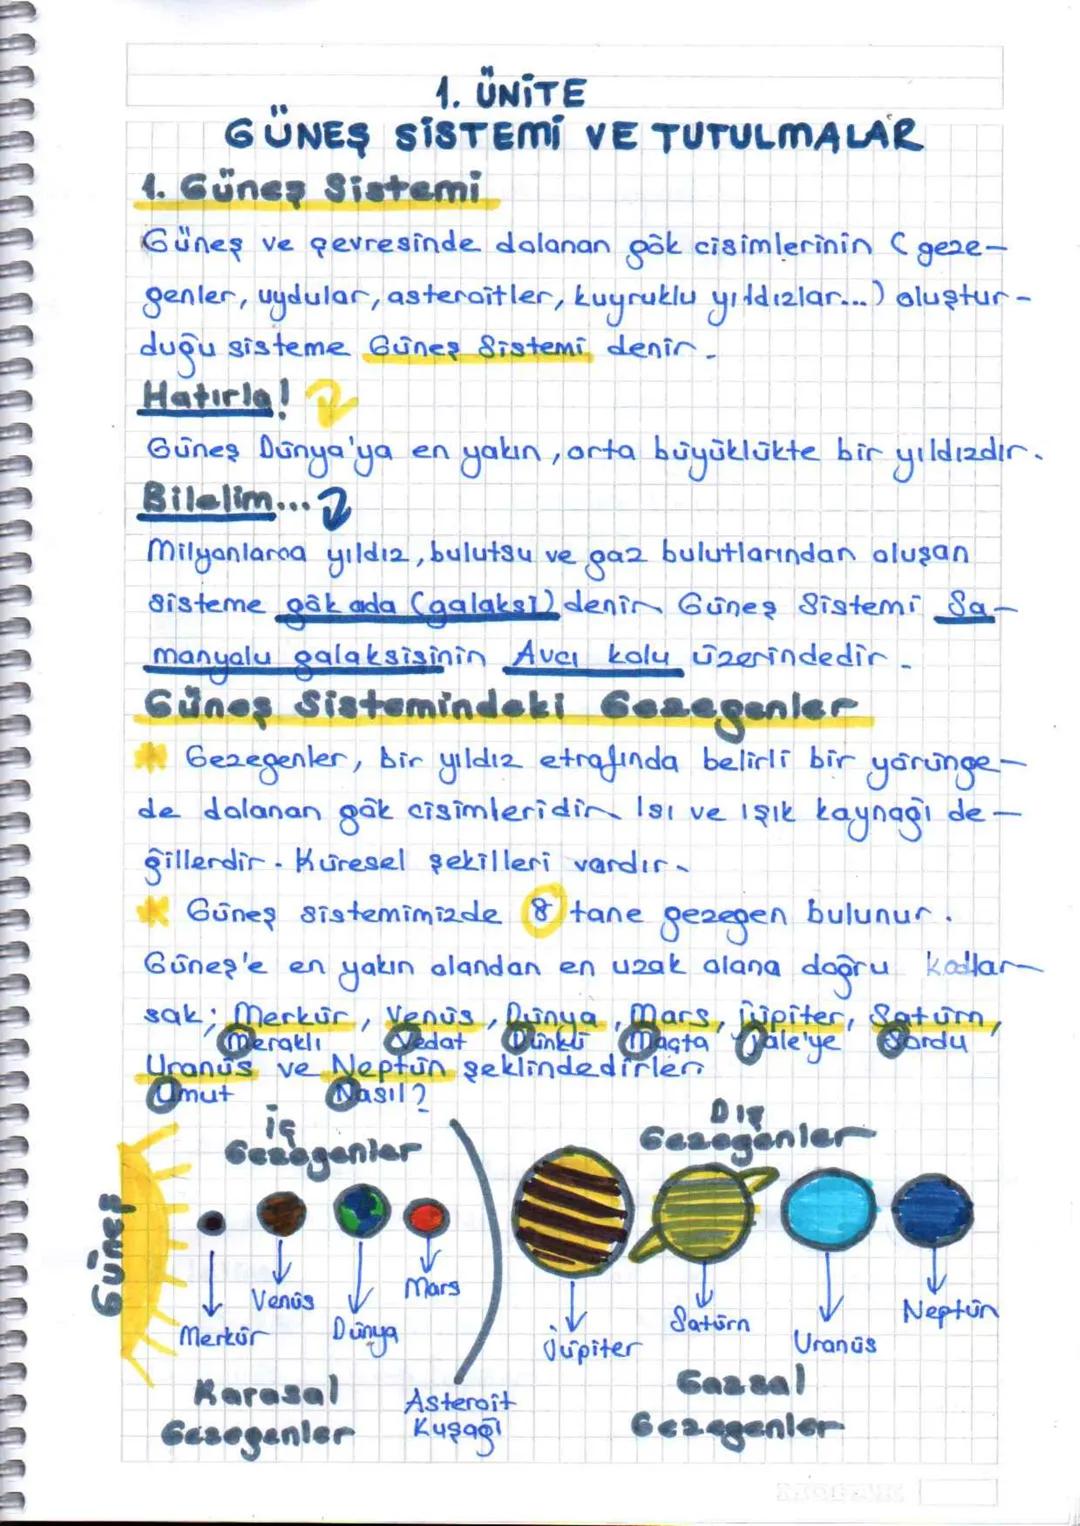 1. ÜNİTE
GÜNEŞ SİSTEMİ VE TUTULMALAR
1. Güneş Sistemi
Güneş ve çevresinde dolanan gök cisimlerinin (geze-
genler, uydular, asteroitler, kuyruklu yıldızlar...) oluştur-
duğu sisteme Güneş Sistemi denir.
Hatırla!
Güneş Dünya'ya en yakın, orta büyüklükte bir yıldızdır.
Bilelim...
Milyonlarca yıldız, bulutsu ve gaz bulutlarından oluşan
sisteme gök ada (galaksi) denir. Güneş Sistemi Sa-
manyolu galaksisinin Avcı kolu üzerindedir.
Güneş Sistemindeki Gezegenler
* Gezegenler, bir yıldız etrafında belirli bir yörünge-
de dolanan gök cisimleridir. Isı ve ışık kaynağı de-
ğillerdir. Küresel şekilleri vardır.
* Güneş sistemimizde 8 tane gezegen bulunur.
Güneş'e en yakın olandan en uzak olana doğru
sak; Merkür, Venüs, Dünya, Mars, Jüpiter, Satürn,
Meraklı Vedat Dünkü Maçta Jale'ye Sordu
Uranüs ve Neptün şeklindedirler.
Umut Nasıl?
İç Gezegenler
Dış Gezegenler
Güneş
Merkür
Venüs
Dünya
Mars
Jüpiter
Satürn
Uranüs
Neptün
Karasal
Gezegenler
Asteroit
Kuşağı
Gazsal
Gezegenler